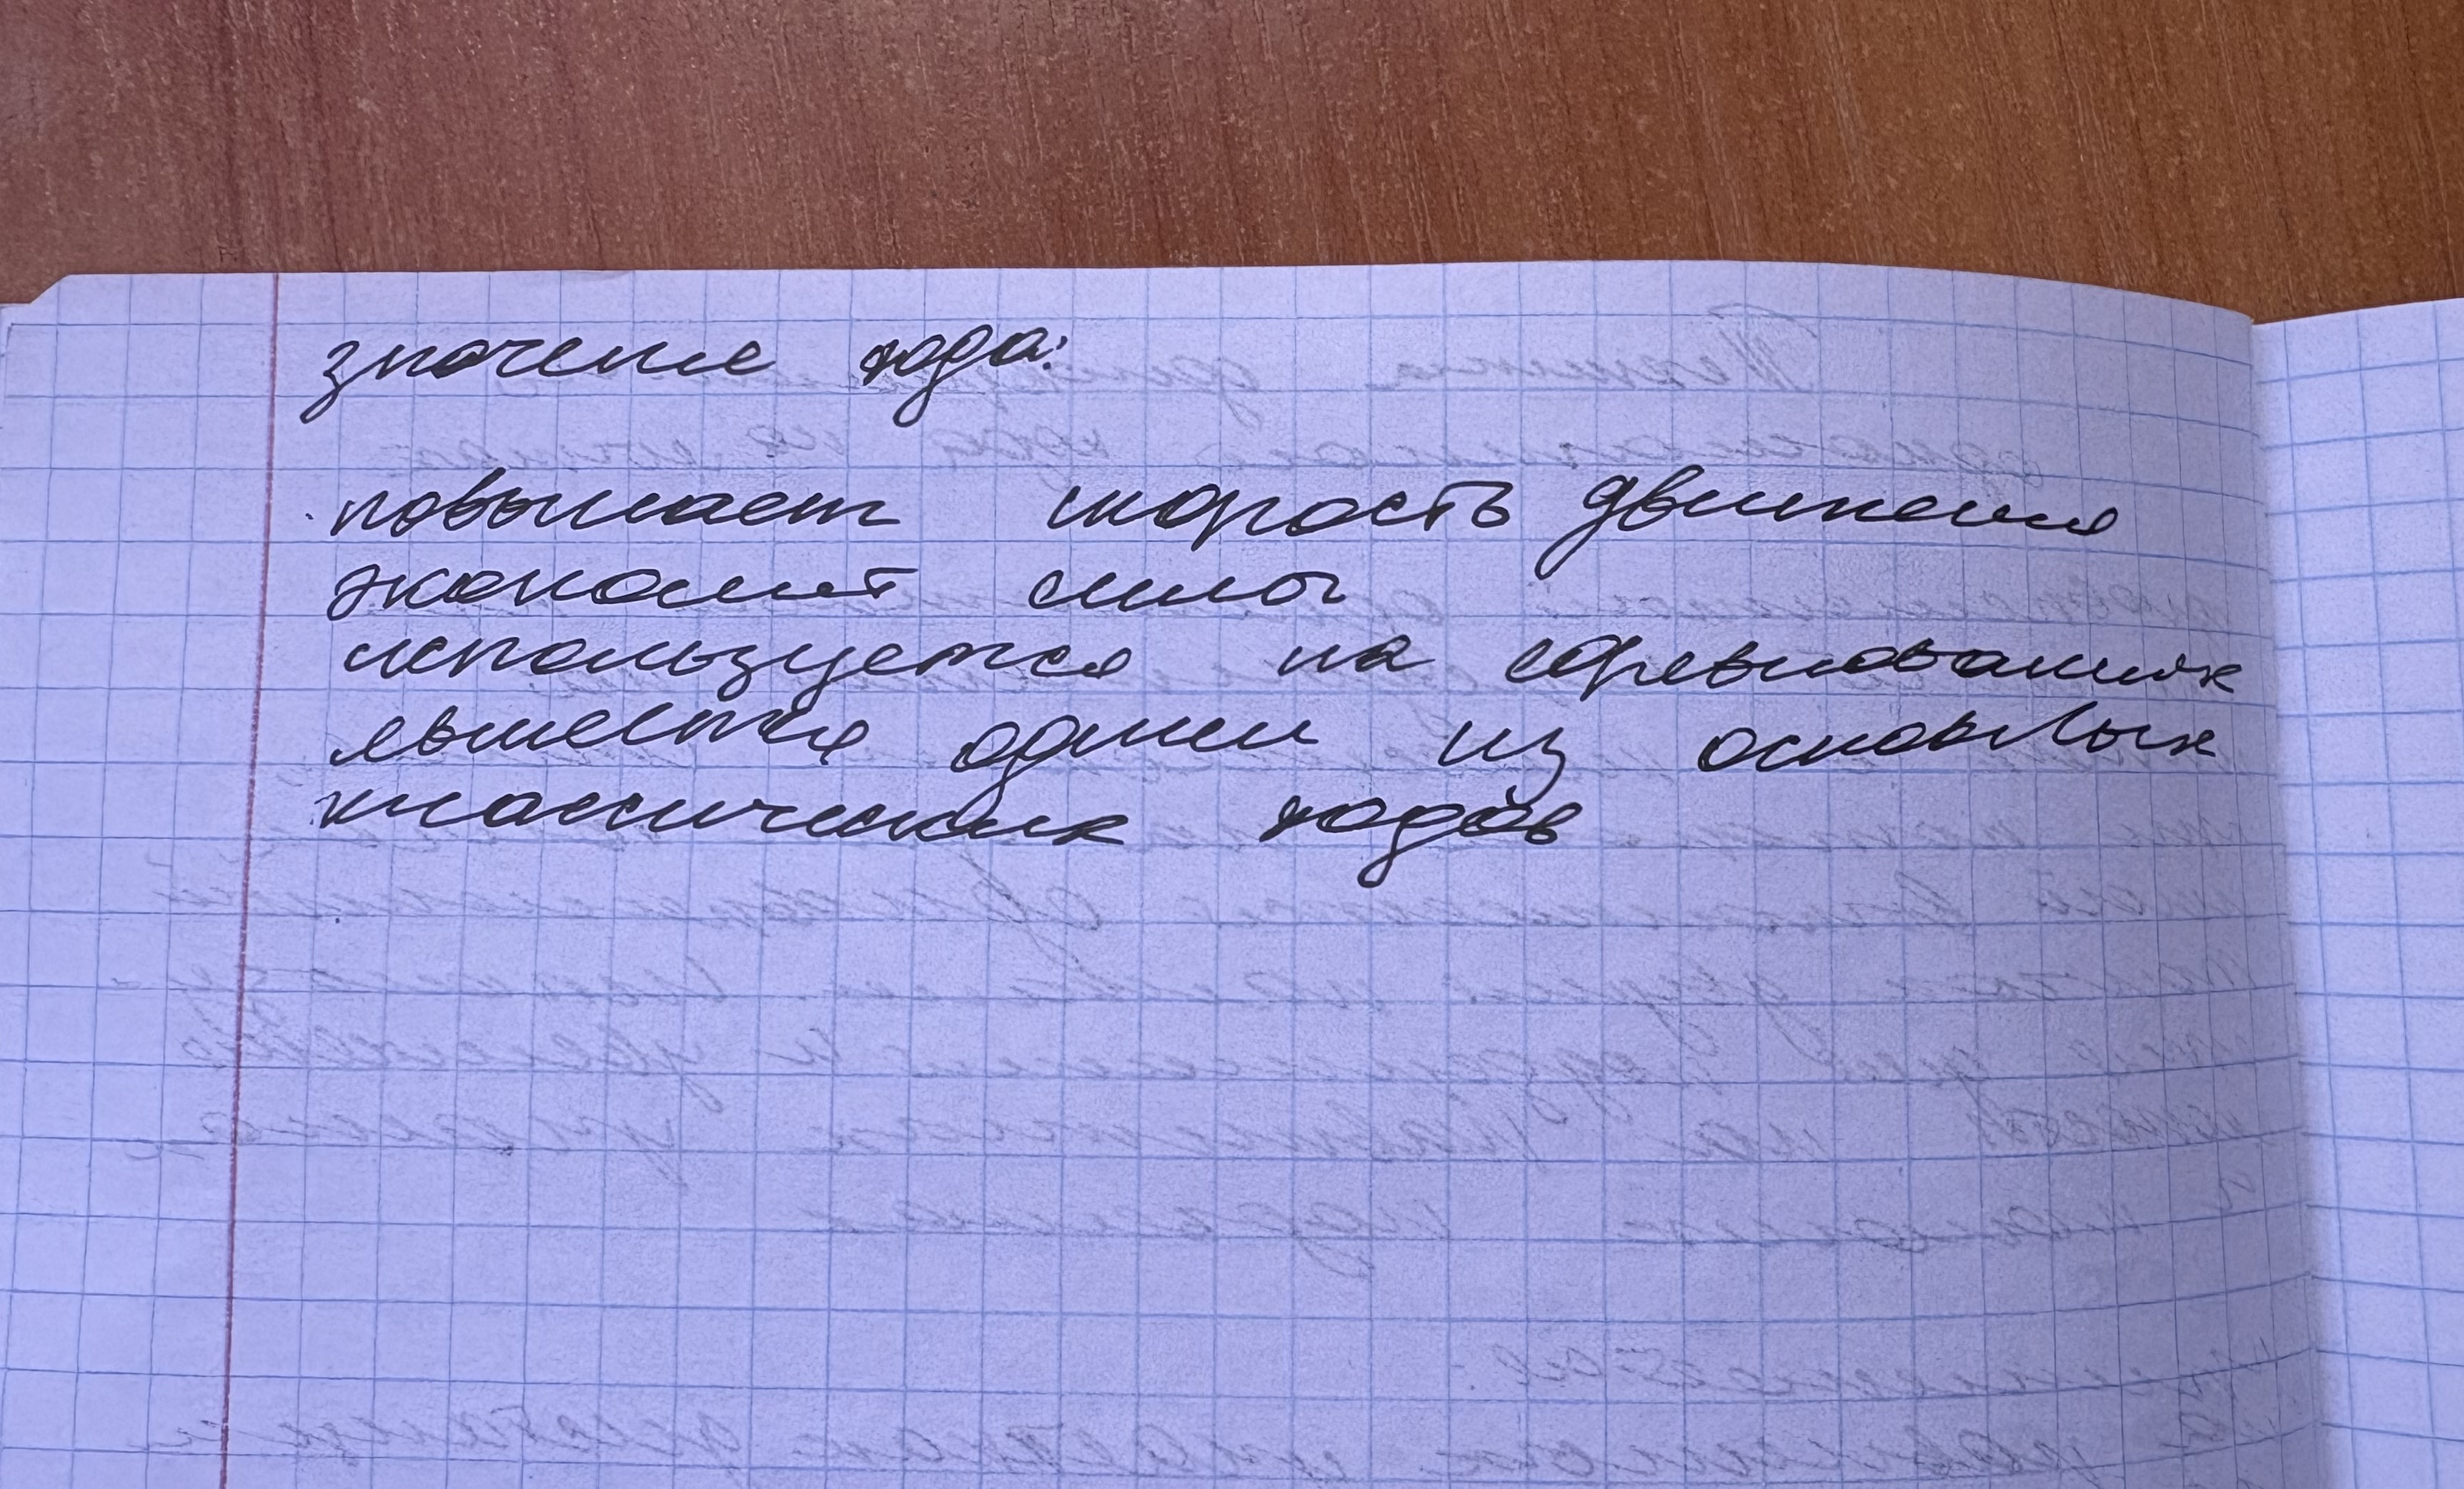 значение хода:
повышает скорость движения
экономит силы
используется на соревнованиях
является одним из основных
классических ходов